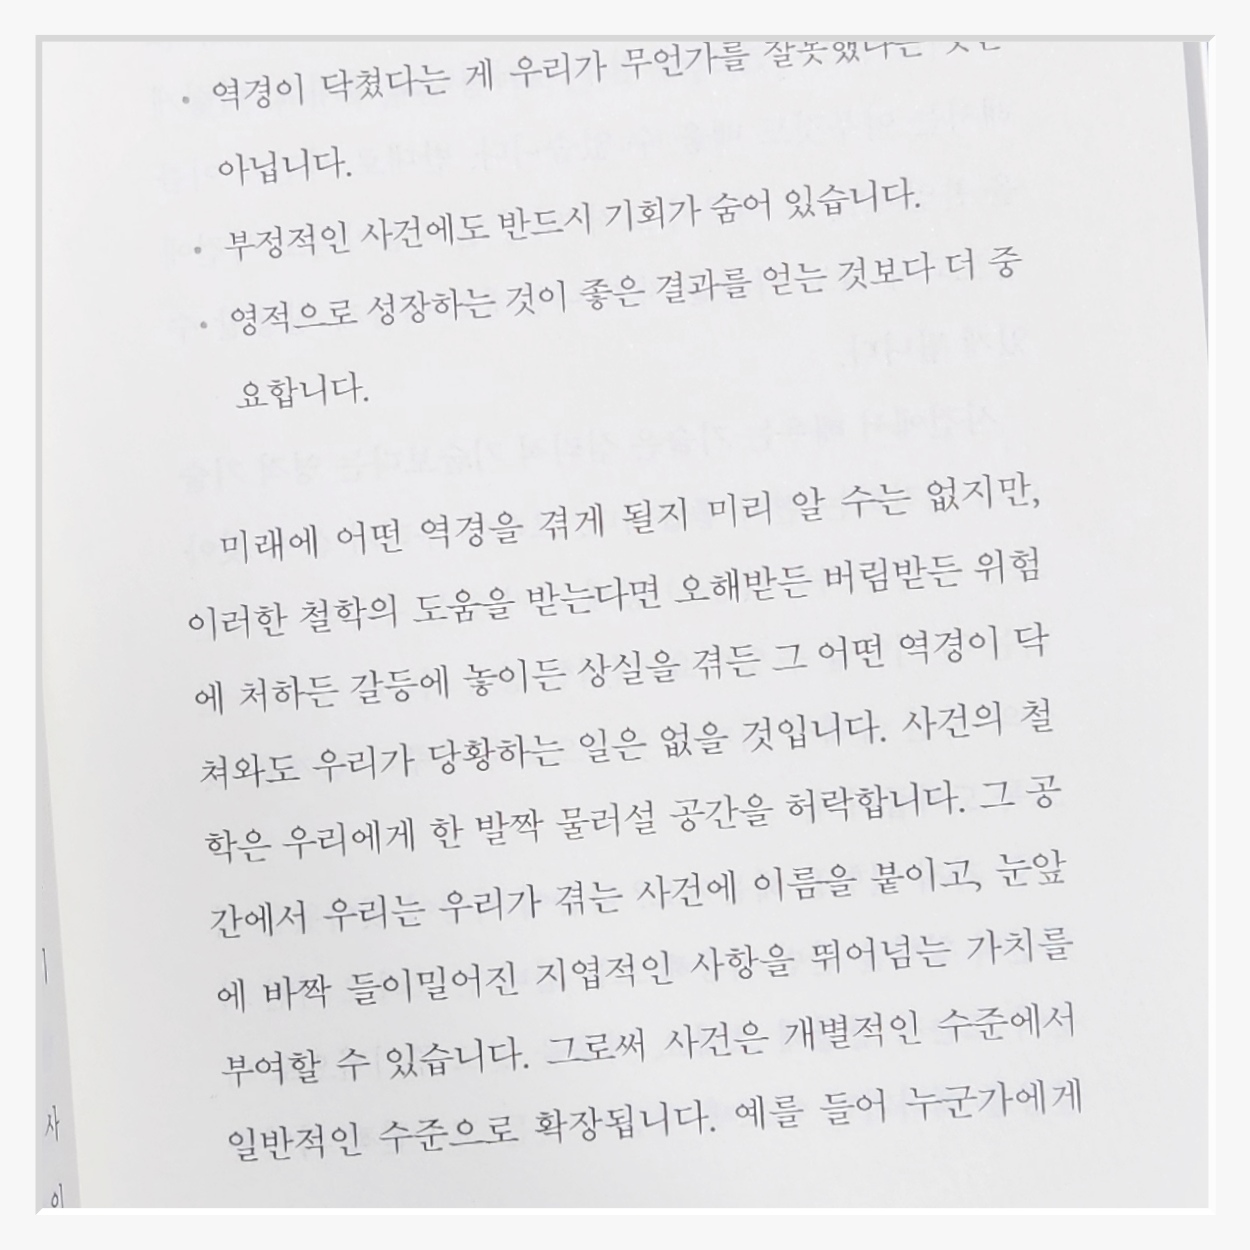 • 역경이 닥쳤다는 게 우리가 무언가를 잘못했다는 것은
아닙니다.
• 부정적인 사건에도 반드시 기회가 숨어 있습니다.
• 영적으로 성장하는 것이 좋은 결과를 얻는 것보다 더 중
요합니다.
미래에 어떤 역경을 겪게 될지 미리 알 수는 없지만,
이러한 철학의 도움을 받는다면 오해받든 버림받든 위험
에 처하든 갈등에 놓이든 상실을 겪든 그 어떤 역경이 닥
쳐와도 우리가 당황하는 일은 없을 것입니다. 사건의 철
학은 우리에게 한 발짝 물러설 공간을 허락합니다. 그 공
간에서 우리는 우리가 겪는 사건에 이름을 붙이고, 눈앞
에 바짝 들이밀어진 지엽적인 사항을 뛰어넘는 가치를
부여할 수 있습니다. 그로써 사건은 개별적인 수준에서
일반적인 수준으로 확장됩니다. 예를 들어 누군가에게
사
이